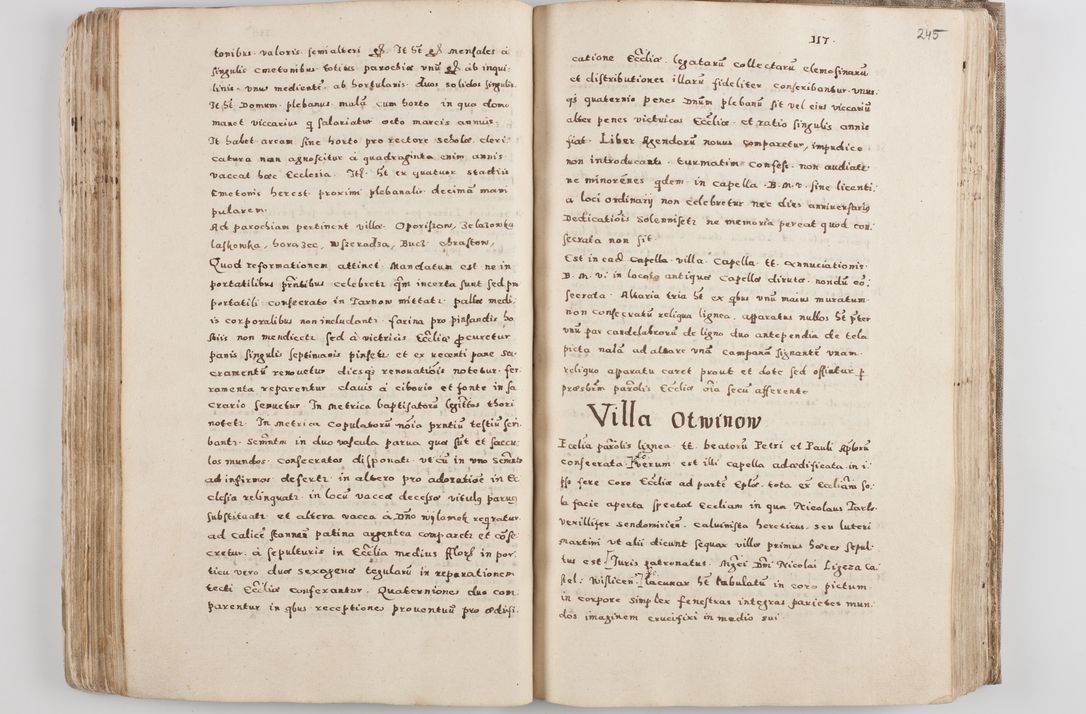 tonibus valoris semialteri gr. It ht gr mensales à
singulis cmetonibus totius parochiæ unũ gr ab inqui
linis unus medienti ab hortulanis duos solidos singulis.
It ht Domum plebanus malã cum horto in quo domo
manet viccarius q salariatur octo marcis annuis.
It habet aream sine horto pro rectore scholæ cleri
catura non agnoscitur à quadraginta enim annis
vaccat hæc Ecclesia. Itẽ ht ex quatuor stadiis
Cmetonis herest proximi plebanalis decimã mani
pularem.
Ad parochiam pertinent villæ Oporiszow, Zelazowka
laskowka, gorazec, wszeradza, Bucz, chraston,
Quod reformationem attinet Mandatum est ne in
portatilibus pñtibus celebret qm incerta sunt sed pro
portatili consecrato in Tarnow mittat. pallæ medi
is corporalibus non includant. farina pro pinsandis ho
stiis non mendicet sed à victricis Eccliæ procuretur
panis singulis septimanis pinset et ex recenti pane sa
cramentũ renovetur diesq renovatiõis notetur fer
ramenta reparentur clavis à ciborio et fonte in sa
crario servetur In metrica baptisatorũ legittus thori
notet. In metrica copulatorũ nõia pntium testiũ scri
bant. Semntm in duo vascula parva quæ sũt et saccu
los mundos consecratos disponat ut cũ in uno Semnto
ad infirmos defert in altero pro adoratiõe in Ec
clesia relinquat. in locũ vaccæ decessæ vitulus parvus
substituat et altera vacca à Dño wilamek reqratur
ad calicẽ stanneũ patina argentea comparet et cõse
cretur. à sepulturis in Ecclia medius florẽ in por
ticu vero duæ sexagenæ tegularũ in reparationem
tecti Eccliæ conferantur. Quaterniones duo com
parentur in qbus receptiones proventuũ pro ædifi
117.
245
catione Eccliæ. legatarũ collectarũ elemosinarũ
et distributiones illarũ fideliter conscribantur. unus
qs quaternio penes Dnũm plebanũ sit vel eius viccariũ
alter penes victricos Eccliæ et ratio singulis annis
fiat. Liber Agendorũ novus comparetur, impudice
non introducant. turmatim confess. non audiat
ne minorenes qdem in capella B. m. v. sine licenti
a loci ordinarij non celebretur nec dies anniversarij
Dedicatiõis solemniset ne memoria pereat quod con
secrata non sit.
Est in ead capella villa Capella tt. Annuciationis
B. M. v. in loco antiquæ Capellæ dirutæ. nondũ cõ
secrata. Altaria tria ht ex qbus unũ maius muratum
non consecratũ reliqua lignea. apparatus nullos ht pter
unũ par candelabrorũ de ligno duo antependia de tela
picta nalã ad altare unã campanã signantẽ unam.
reliquo apparatu caret prout et dote sed offiitur p
præsbrm parolis Eccliæ oia secũ afferente
Villa Otwinow
Ecclia parolis lignea tt. beatorũ Petri et Pauli Aplorũ
consecrata. Verum est illi capella adædificata in i
pso fere coro Eccliæ ad partẽ Eplæ. tota ex Eccliam so
la facie aperta spectat Eccliam in qua Nicolaus Tarlo
vexillifer sendomirien. calvinista hereticus seu luteri
martini ut alii dicunt sequax villæ primus hæres sepul
tus est. Juris patronatus. Mgci Dni Nicolai Ligeza Ca
stel: Wislicen. Lacunar ht tabulatũ in coro pictum.
in corpore simplex fenestras integras parietes mun
dos imaginem crucifixi in medio sui